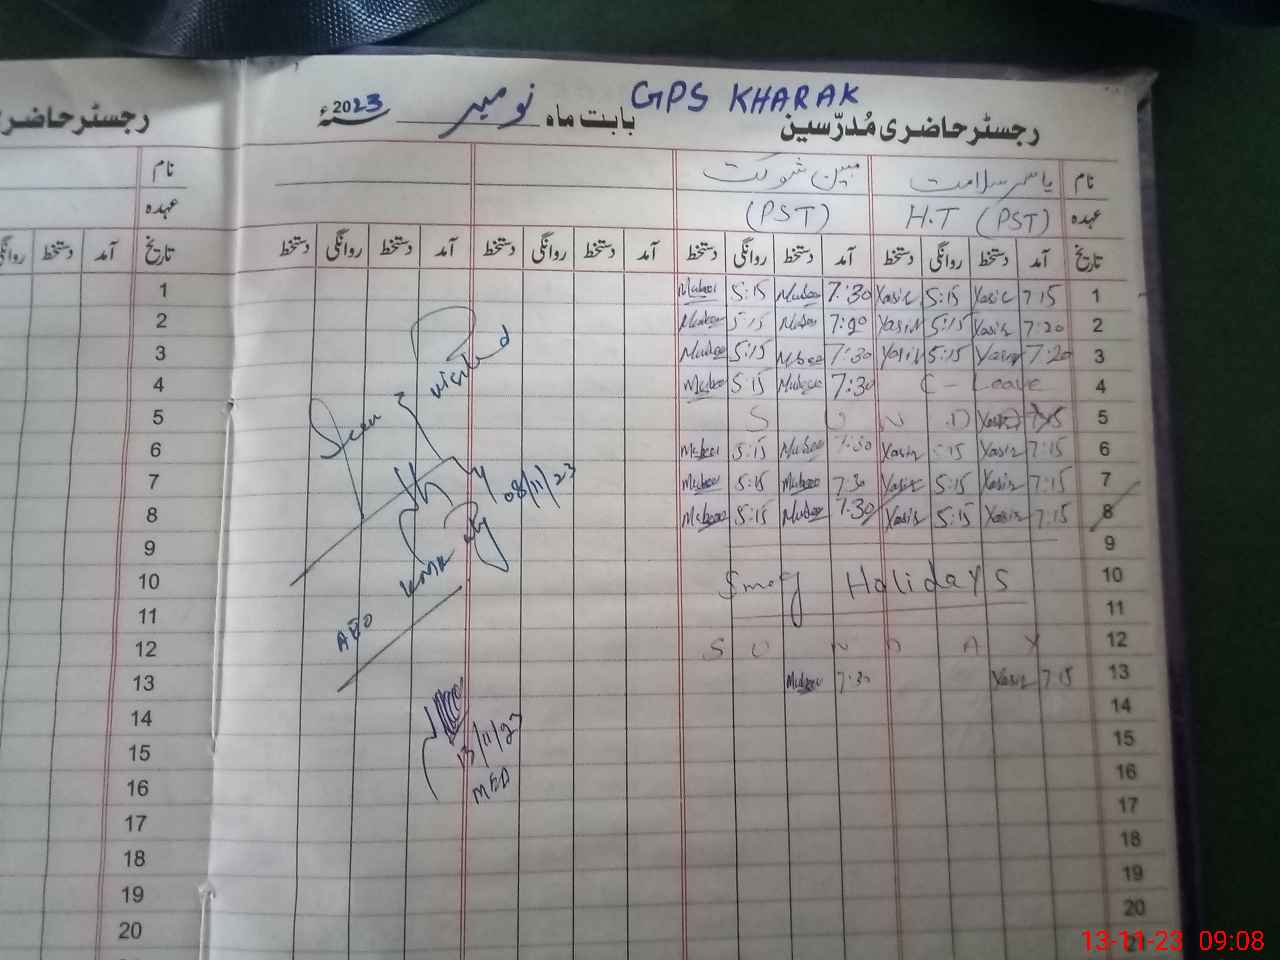 GPS KHARAK
رجسٹر حاضری مُدرّسین بابت ماہ نومبر سنہ 2023ء
رجسٹر حاضری
نام یاسر سلامت مبین شوکت نام
عہدہ H.T (PST) (PST) عہدہ
تاریخ آمد دستخط روانگی دستخط آمد دستخط روانگی دستخط آمد دستخط روانگی دستخط آمد دستخط روانگی دستخط تاریخ آمد دستخط روانگی
1 7:15 Yasir 5:15 Yasir 7:30 5:15 1
2 7:20 Yasir 5:15 Yasir 5:15 2
3 7:20 Yasir 5:15 Yasir 7:30 5:15 3
4 C-Leave 7:30 5:15 4
5 S U N D Yasir 7:15 5
6 7:15 Yasir 5:15 Yasir 7:30 5:15 6
7 7:15 Yasir 5:15 Yasir 7:30 5:15 7
8 7:15 Yasir 5:15 Yasir 7:30 5:15 8
9 9
10 Smog Holidays 10
11 11
12 S U N D A Y 12
13 7:15 Yasir 7:30 13
14 14
15 15
16 16
17 17
18 18
19 19
20 20
Seen & visited
08/11/23
AEO
13/11/23
MEA
13-11-23 09:08